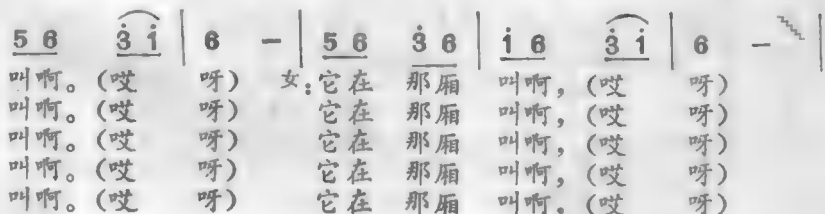 5 6 3̇ 1̇ | 6 － | 5 6 3̇ 6 | 1̇ 6 3̇ 1̇ | 6 － |
叫啊。(哎 呀) 女：它在 那厢 叫啊，(哎 呀)
叫啊。(哎 呀) 它在 那厢 叫啊，(哎 呀)
叫啊。(哎 呀) 它在 那厢 叫啊，(哎 呀)
叫啊。(哎 呀) 它在 那厢 叫啊，(哎 呀)
叫啊。(哎 呀) 它在 那厢 叫啊，(哎 呀)